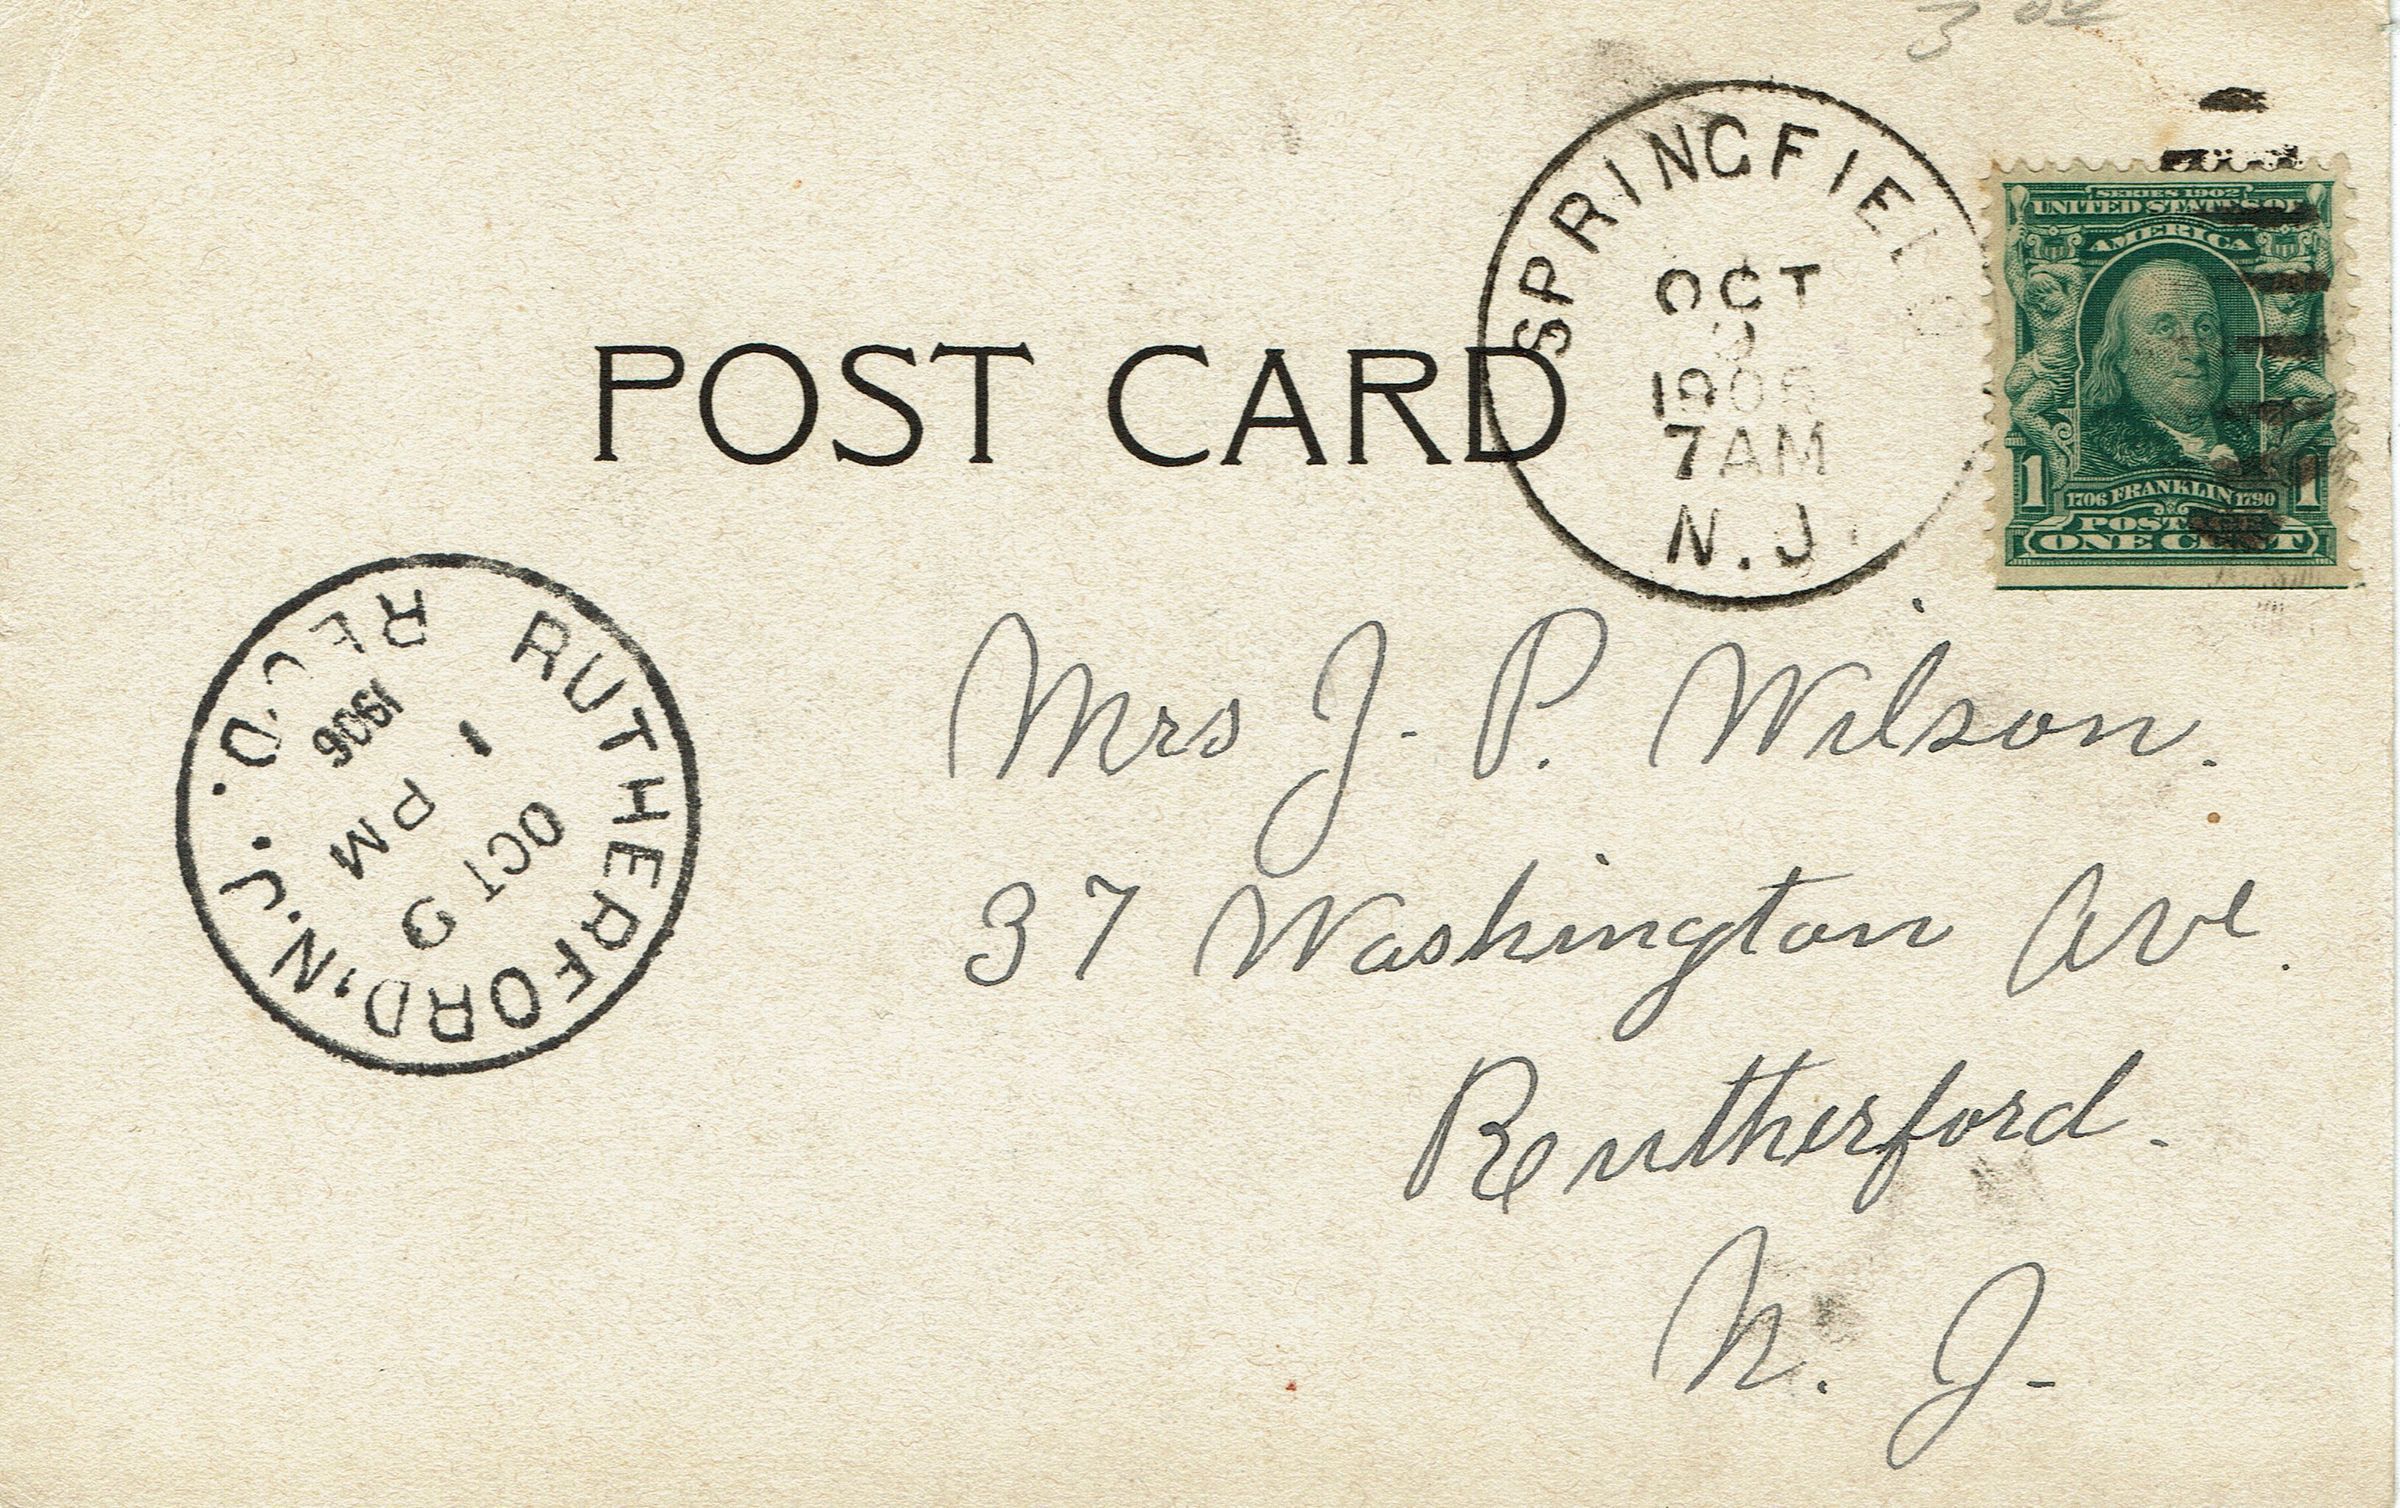 3 00
SPRINGFIELD
OCT
9
1906
7 AM
N.J.
SERIES 1902
UNITED STATES OF
AMERICA
1 1706 FRANKLIN 1790 1
POSTAGE
ONE CENT
POST CARD
RUTHERFORD, N.J.
REC'D.
OCT 9
1 PM
1906
Mrs J. P. Wilson.
37 Washington Ave.
Rutherford.
N. J.